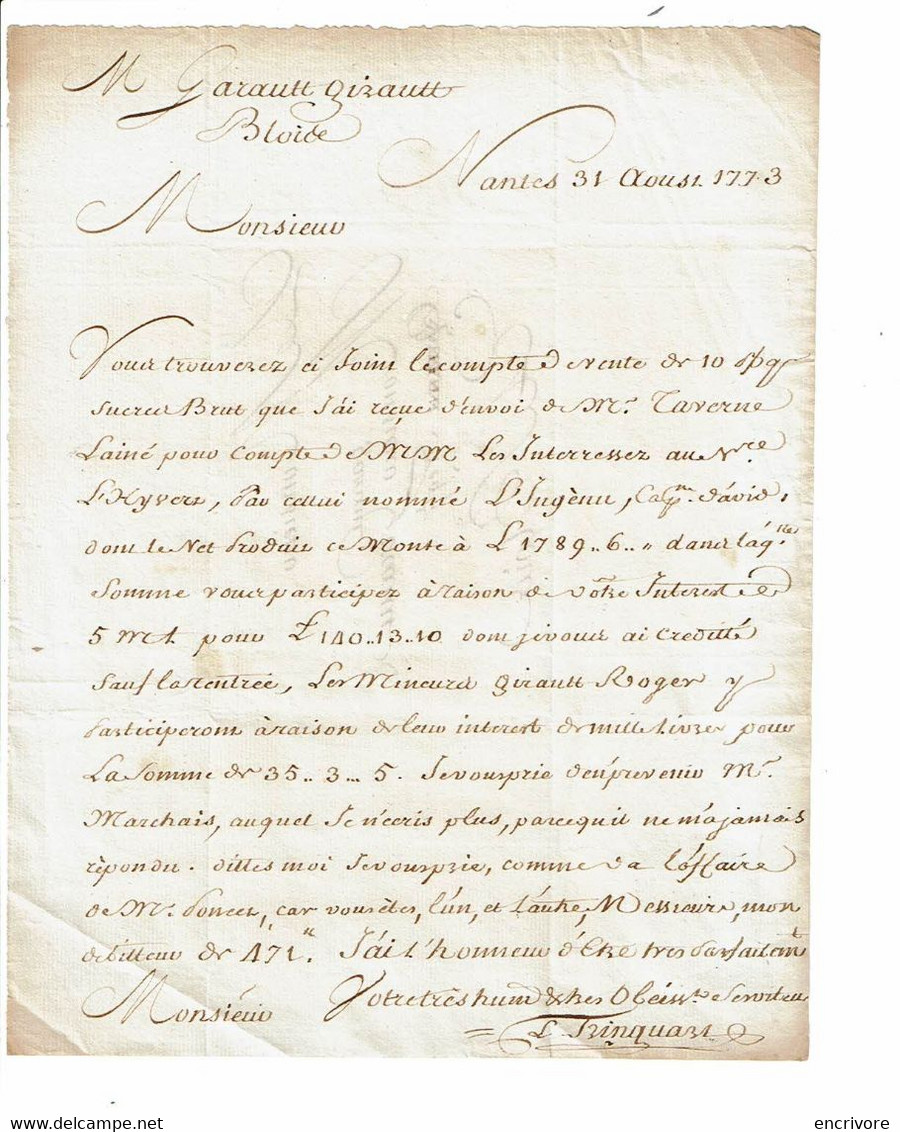 M Garault Girault
Bloise
Nantes 31 Aoust 1773
Monsieur
Vous trouverez ci Joint le compte de vente de 10
sucres Brut que J'ai reçue d'envoi de Mr. Taverne
Lainé pour compte de MM Les Interressez au Nre
L'Hyvert, par cellui nommé L'Ingènu, Capne. david,
dont le Net produit ce Monte à L 1789..6.." dans laqlle
Somme vous participez à raison de votre Interest de
5 M t pour £ 140..13..10 dont je vous ai Creditté
Sauf la rentrée, Les Mineurs girault Roger y
participeront à raison de leur interest de mille Livres pour
La Somme de 35..3..5. Je vous prie d'en prevenir Mr.
Marchais, auquel Je n'ecris plus, parcequ'il ne m'a jamais
rèpondu. dittes moi Je vous prie, comme va l'affaire
de Mr. poncet, car vous ètes, l'un, et l'autre, Messieurs, mon
debitteur de 471". J'ai L'honneur d'Etre tres parfaitemt
Monsiéur Votre trés humb & tres Obéisste Serviteur
L Trinquart
encrivore